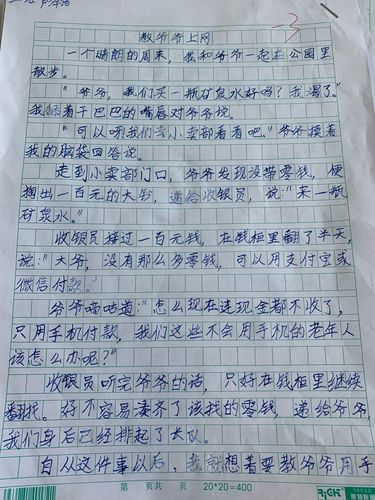 -3
教爷爷上网
一个晴朗的周末，我和爷爷一起在公园里
散步。
"爷爷，我们买一瓶矿泉水好吗？我渴了。"
我舔着干巴巴的嘴唇对爷爷说。
"可以呀我们去小卖部看看吧。"爷爷摸着
我的脑袋回答说。
走到小卖部门口，爷爷发现没带零钱，便
掏出一百元的大钞，递给收银员，说："来一瓶
矿泉水。"
收银员接过一百元钱，在钱柜里翻了半天，
说："大爷，没有那么多零钱，可以用支付宝或
微信付款。"
爷爷嘀咕道："怎么现在连现金都不收了，
只用手机付款，我们这些不会用手机的老年人
该怎么办呢？"
收银员听完爷爷的话，只好在钱柜里继续
翻找。好不容易凑齐了该找的零钱，递给爷爷，
我们身后已经排起了长队。
自从这件事以后，我就想着要教爷爷用手
第 页共 页 20*20=400